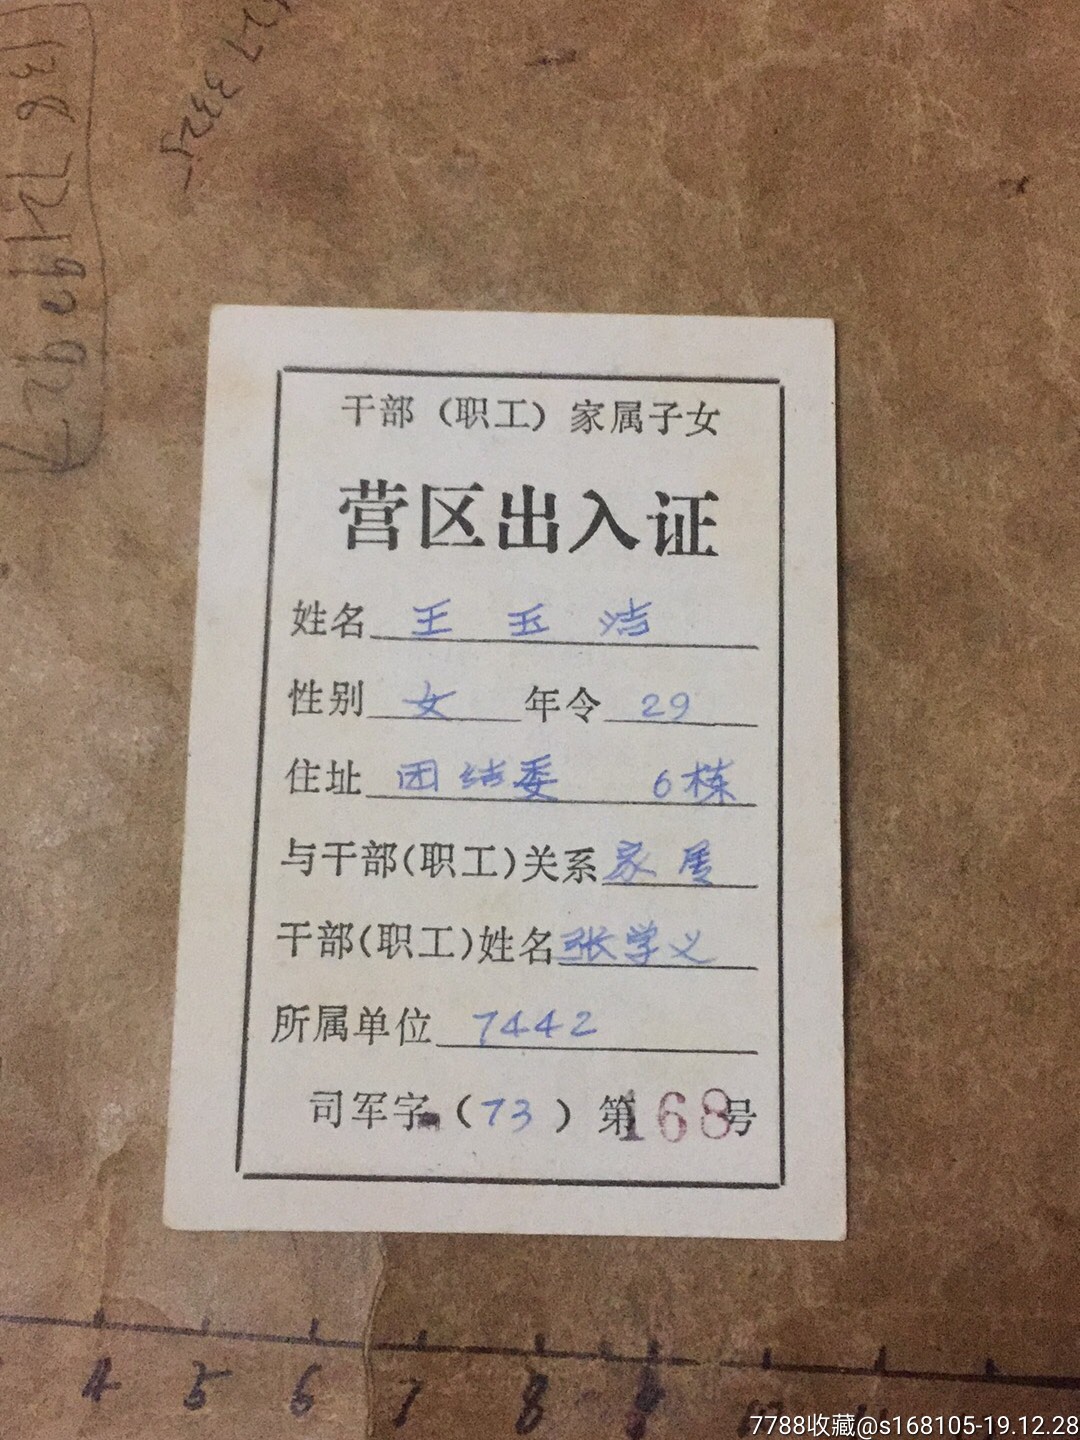 干部（职工）家属子女
营区出入证
姓名 王玉洁
性别 女 年令 29
住址 团结委 6栋
与干部(职工)关系 家属
干部(职工)姓名 张学义
所属单位 7442
司军字（73）第168号
4 5 6 7 8 9 10
7788收藏@s168105-19.12.28